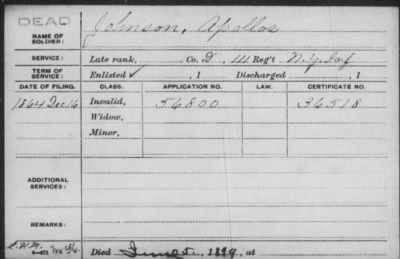 DEAD
Johnson, Apollos
NAME OF SOLDIER:
SERVICE: Late rank, Co. D, 111 Reg't N.Y. Inf
TERM OF SERVICE: Enlisted , 1 Discharged , 1
DATE OF FILING. CLASS. APPLICATION NO. LAW. CERTIFICATE NO.
1864 Dec 16 Invalid, 56800 36518
Widow,
Minor,
ADDITIONAL SERVICES:
REMARKS:
Died June 5, 1899, at